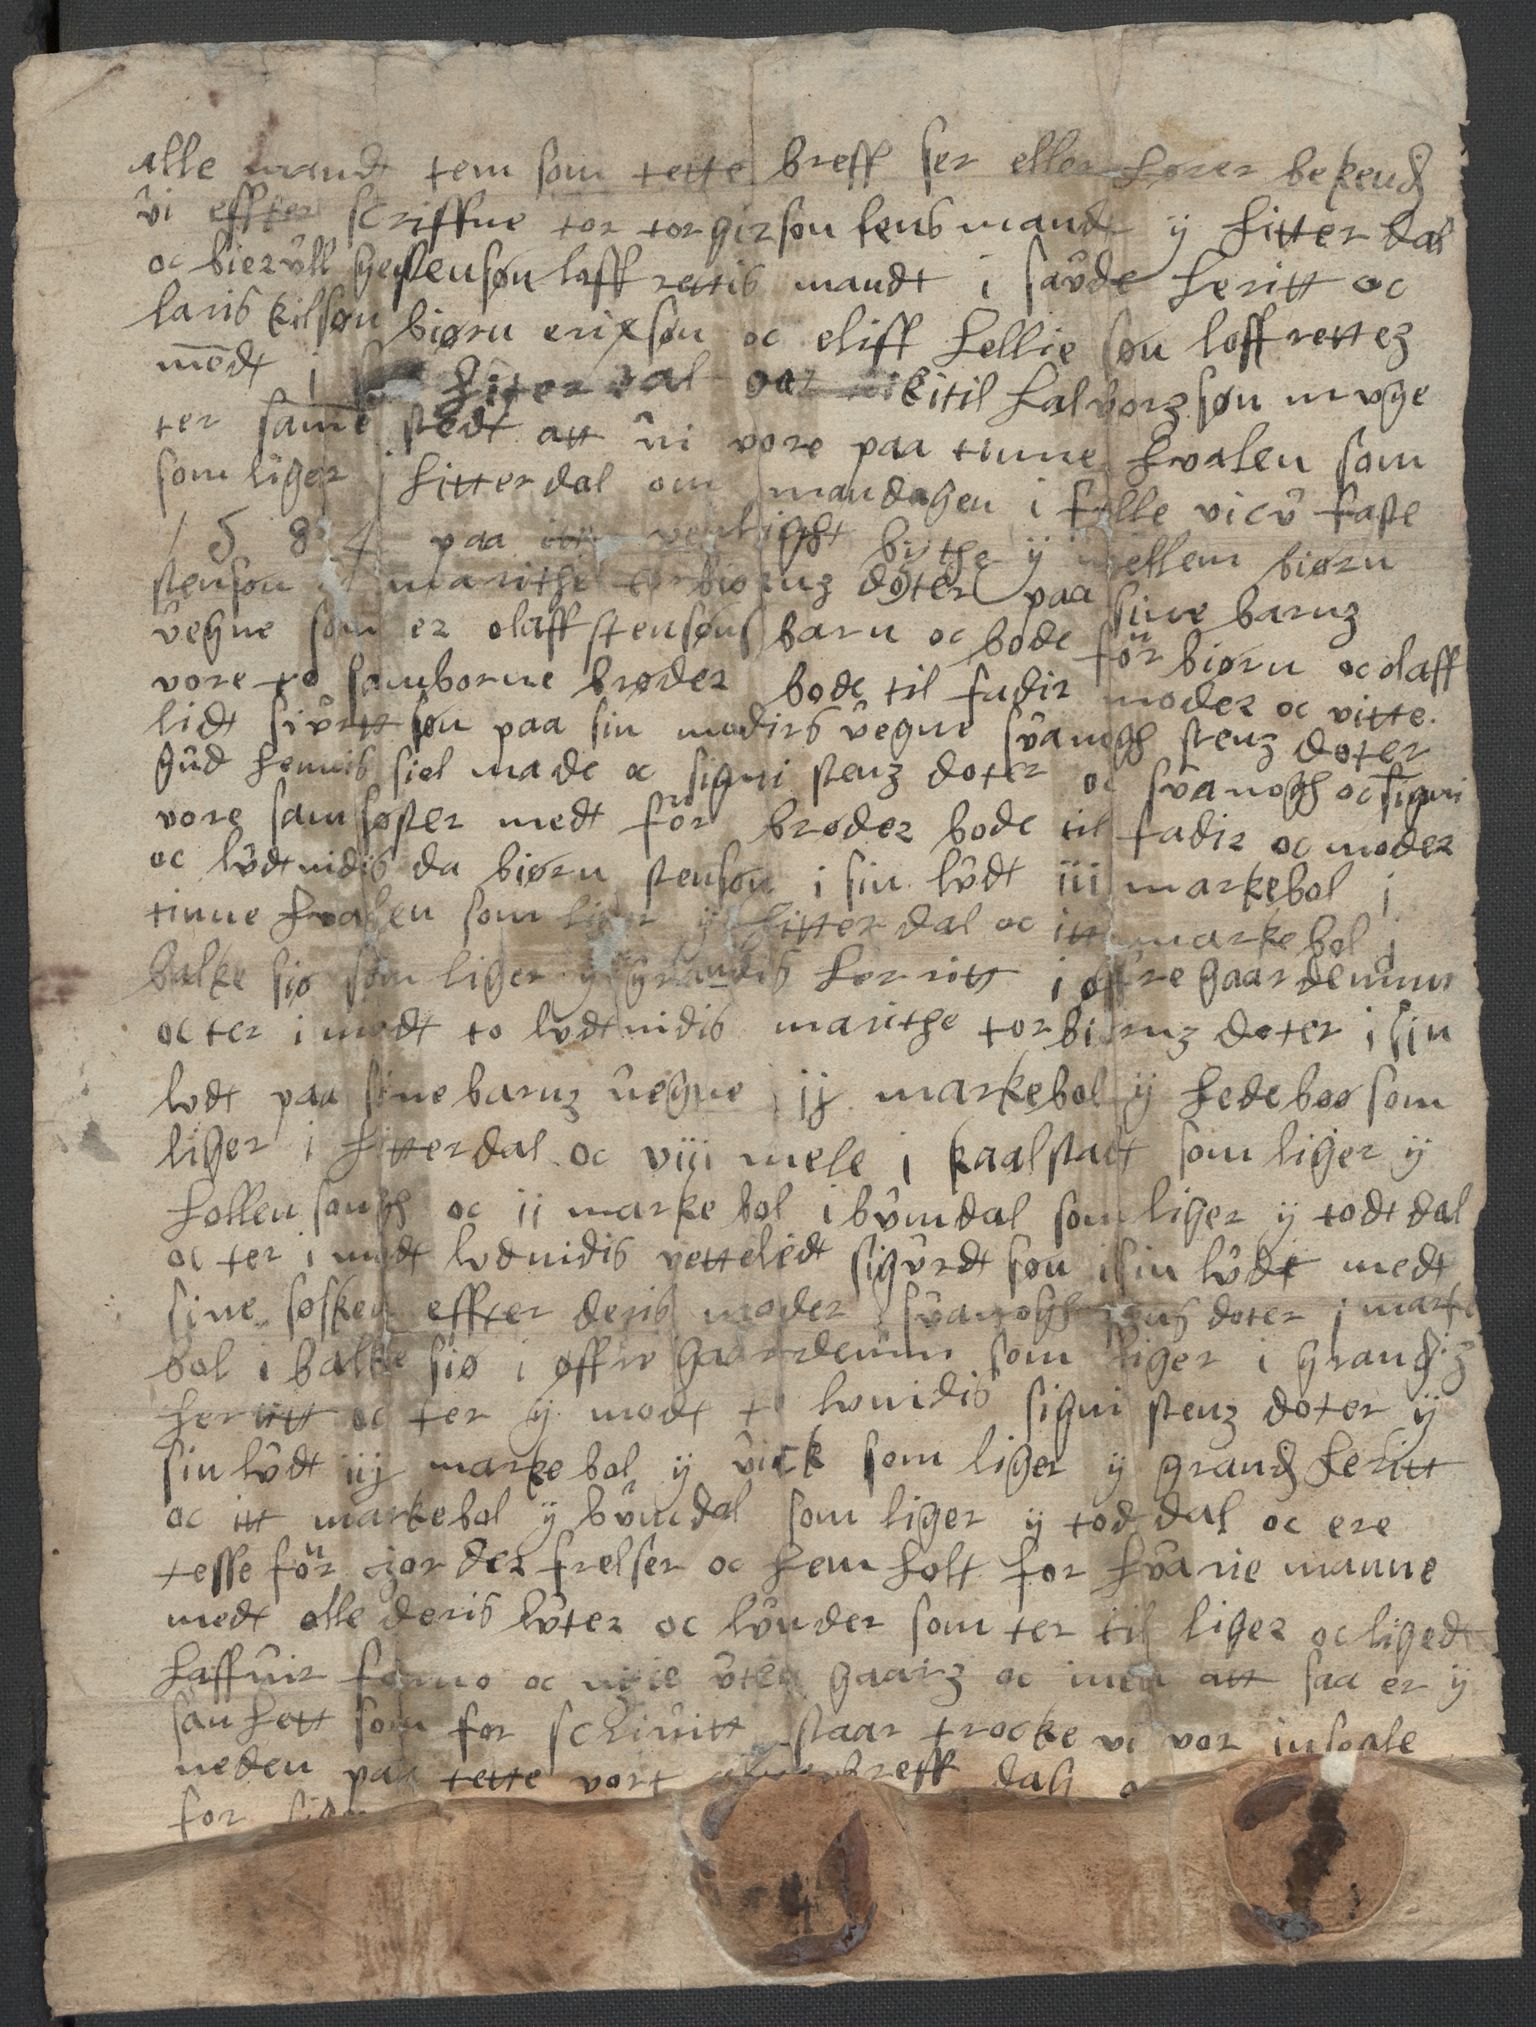 alle mandt tem som tette breff ser eller hører bekendz
vi effter scriffne tor torgirson lensmandt y hitterdal
oc bierull stensøn laffrettis mandt i saude heritt oc
laris kilsøn biørn erixsøn oc eliff hellie søn loffrettez
mendt i hiterdal oc kitil halvorzsøn
ter same stedt att vi vore paa tinne hvalen som
som liger i hitterdal om mandagen i fulle vicu faste
1584 paa itt venligtt bythe y mellem biørn
stensøn oc marithe torbiørnz doter paa sine barnz
vegne som er olaff stensøns barn oc bode för biørn oc olaff
vore to samborne brøder bode til fadir moder oc vitte
lidt sivrtt søn paa sin modirs vegne svanogh stenz doter
gud hennis siel nade oc signi stenz doter oc svanogh oc signi
vore samsøster medt för brøder bode til fadir oc moder
oc lvdtnidis da biørn stensøn i sin lvdt iii markebol i
tinne hvalen som liger y hitterdal oc itt markebol i
balke siø som liger y grandis herritt i øffre gaardenum
oc ter i modt to lvdtnidis marithe torbiørnz doter i sin
lvdt paa sine barnz vegne ij markebol y hedeboø som
liger i hitterdal oc viii mele i kaalstadt som liger y
hollen songh oc ii markebol i bømdal som liger y todtdal
oc ter i modt lvdnidis vettelidt sigurdt søn i sin lvdt medt
sine søsken effter deris moder svanogh stens doter i marke
bol i balke siø i øffre gaardenum som liger i grandz
herritt oc ter y modt to lvnidis signi stenz doter y
sin lvdt iij markebol y vick som liger y grandz heritt
oc itt markebol y bømdal som liger y toddal oc ere
tesse för jorder frelser oc hemholt for hvarie manne
medt alle deris lvter oc lvnder som ter til liger oc ligedt
haffuir forno oc nyie vten gaarz oc inen att saa er y
sanhett som for scriuitt staar trocke vi vor insegle
neden paa tette vort breff dag
for